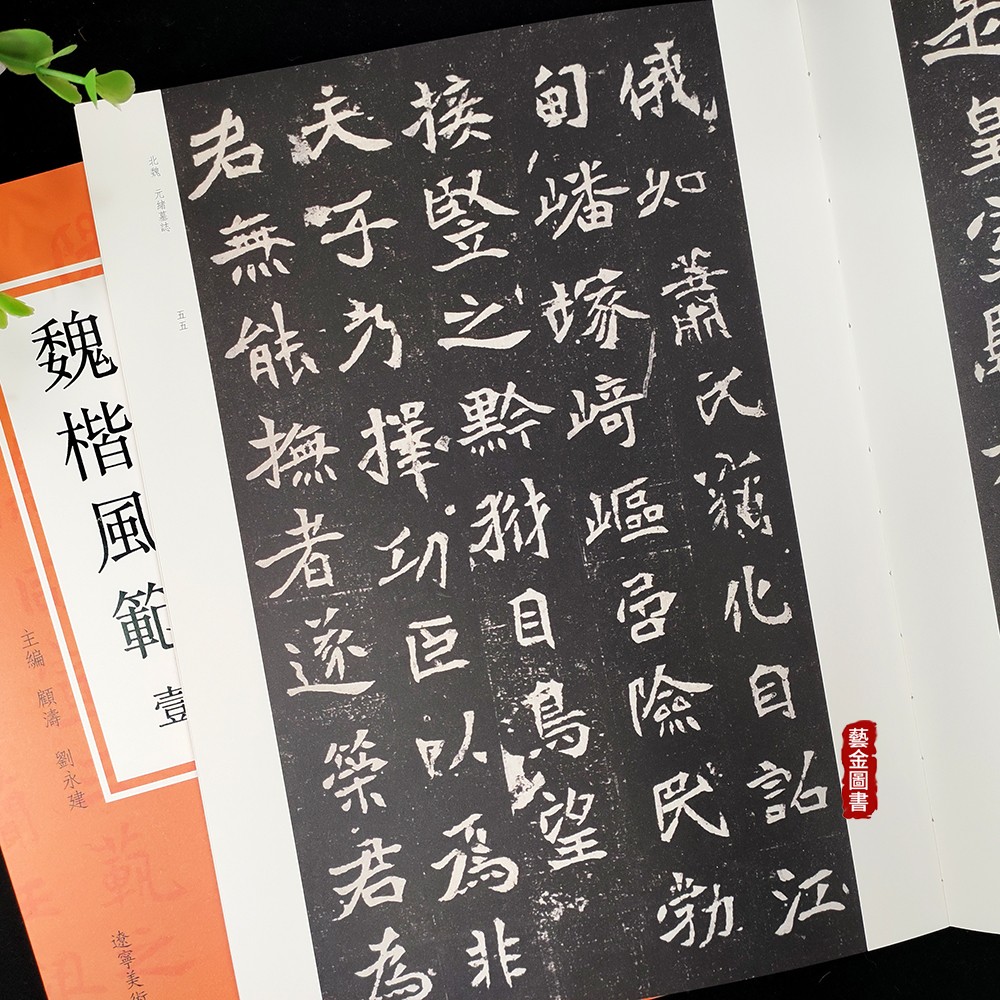 俄如蕭氏竊化自詔江
甸嶓塚崎嶇嵒險民勃
接豎之黔猶自鳥望
天子乃擇功臣以為非
君無能撫者遂策君為
北魏 元緒墓誌
五五
魏楷風範
壹
主編 顧濤 劉永建
遼寧美術
藝金圖書